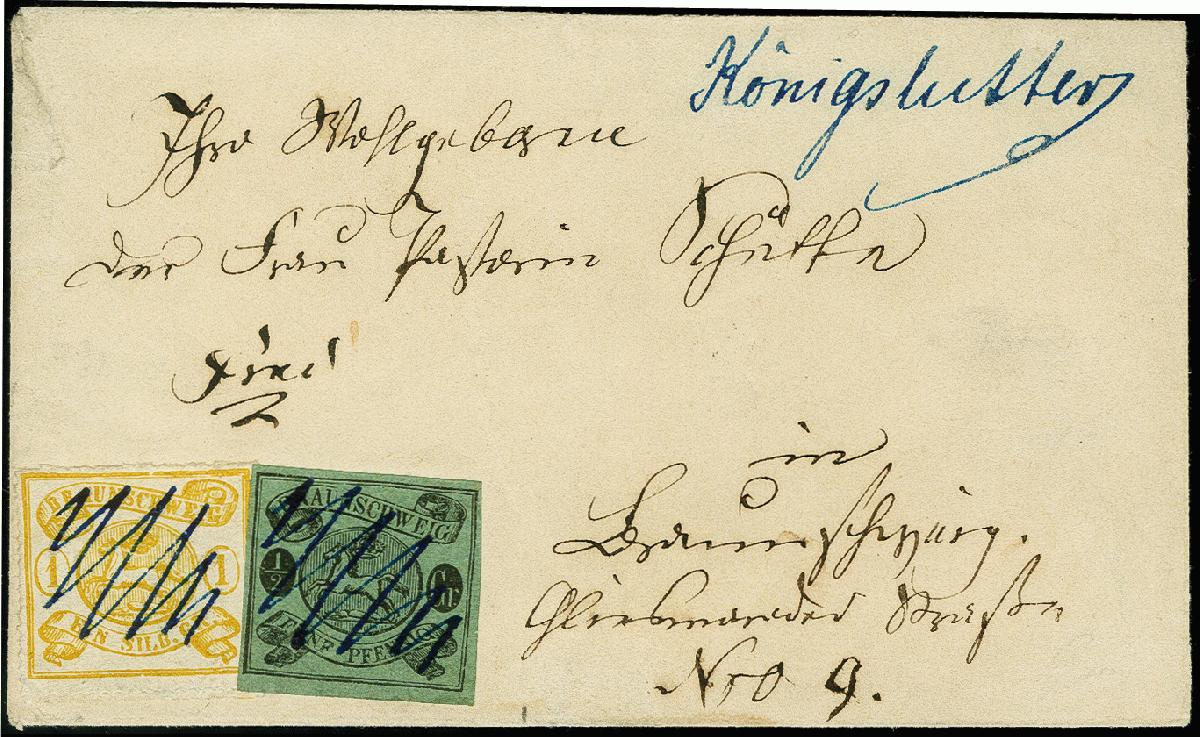 Königslutter
Ihro Wohlgeboren
der Frau Pastorin Schütte
frei
in
Braunschweig.
Straße
Nro 9.
BRAUNSCHWEIG
1 1
EIN SILB. GR.
BRAUNSCHWEIG
1/2 GR.
FÜNF PFENNIG